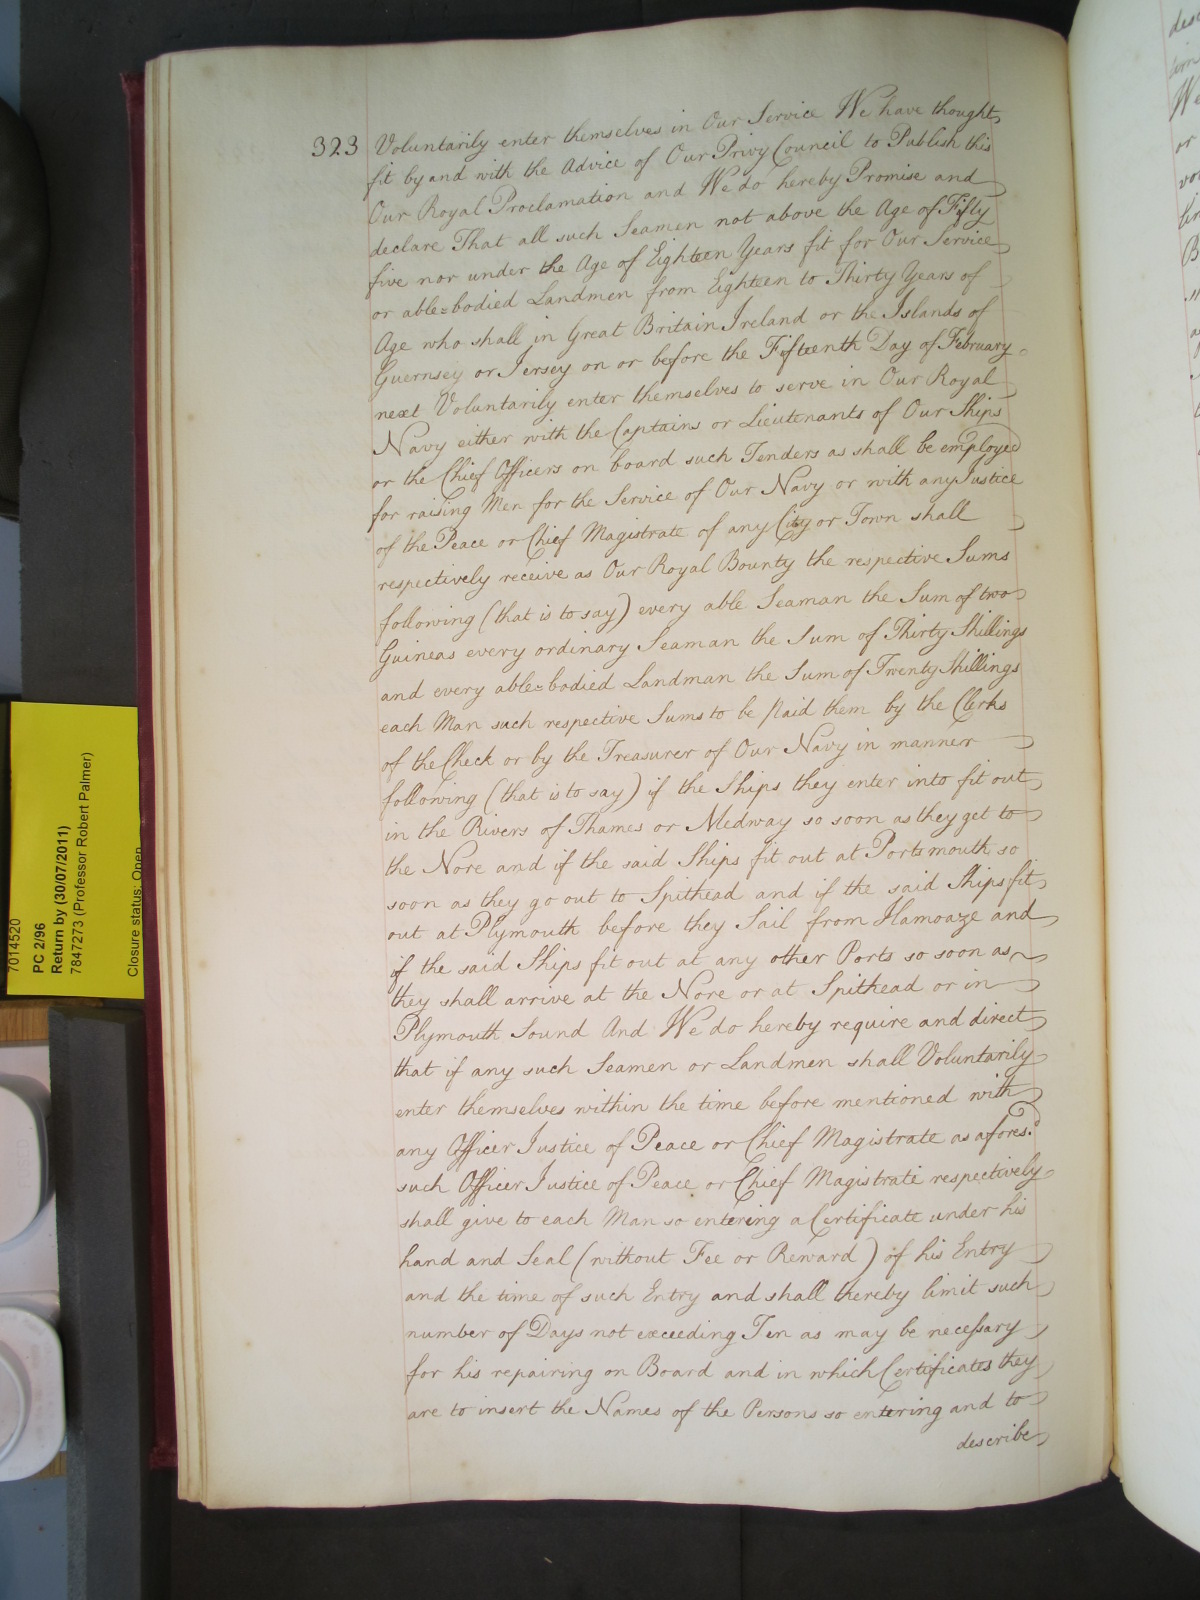 323
Voluntarily enter themselves in Our Service We have thought
fit by and with the Advice of Our Privy Council to Publish this
Our Royal Proclamation and We do hereby Promise and
declare That all such Seamen not above the Age of Fifty
five nor under the Age of Eighteen Years fit for Our Service
or able=bodied Landmen from Eighteen to Thirty Years of
Age who shall in Great Britain Ireland or the Islands of
Guernsey or Jersey on or before the Fifteenth Day of February
next Voluntarily enter themselves to serve in Our Royal
Navy either with the Captains or Lieutenants of Our Ships
or the Chief Officers on board such Tenders as shall be employed
for raising Men for the Service of Our Navy or with any Justice
of the Peace or Chief Magistrate of any City or Town shall
respectively receive as Our Royal Bounty the respective Sums
following (that is to say) every able Seaman the Sum of two
Guineas every ordinary Seaman the Sum of Thirty Shillings
and every able=bodied Landman the Sum of Twenty Shillings
each Man such respective Sums to be paid them by the Clerks
of the Check or by the Treasurer of Our Navy in manner
following (that is to say) if the Ships they enter into fit out
in the Rivers of Thames or Medway so soon as they get to
the Nore and if the said Ships fit out at Portsmouth so
soon as they go out to Spithead and if the said Ships fit
out at Plymouth before they Sail from Hamoaze and
if the said Ships fit out at any other Ports so soon as
they shall arrive at the Nore or at Spithead or in
Plymouth Sound And We do hereby require and direct
that if any such Seamen or Landmen shall Voluntarily
enter themselves within the time before mentioned with
any Officer Justice of Peace or Chief Magistrate as afores.d
such Officer Justice of Peace or Chief Magistrate respectively
shall give to each Man so entering a Certificate under his
hand and Seal (without Fee or Reward) of his Entry
and the time of such Entry and shall thereby limit such
number of Days not exceeding Ten as may be necessary
for his repairing on Board and in which Certificates they
are to insert the Names of the Persons so entering and to
describe
7014520
PC 2/96
Return by (30/07/2011)
7847273 (Professor Robert Palmer)
Closure status: Open